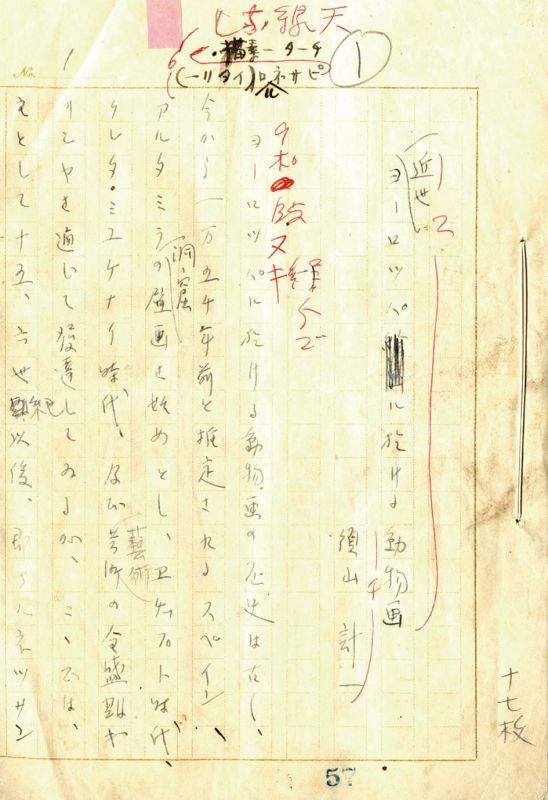 天線なし
①
チーター素描。
(ピサネロ(イタリー)
No.
1
十七枚
1 2
近世ヨーロッパに於ける動物画
須山計一
9ポ 段ヌキ
ヨーロッパに於ける動物画の歴史は古く、
今から一万五千年前と推定されるスペイン、
アルタミラの洞窟の壁画を始めとし、エヂプト時代、
クレタ・ミユケナイ時代、及び芸術の全盛期ギ
リシヤを通じて発達してゐるが、こゝでは、
主として十五、六世紀以後、即ちルネッサン
57